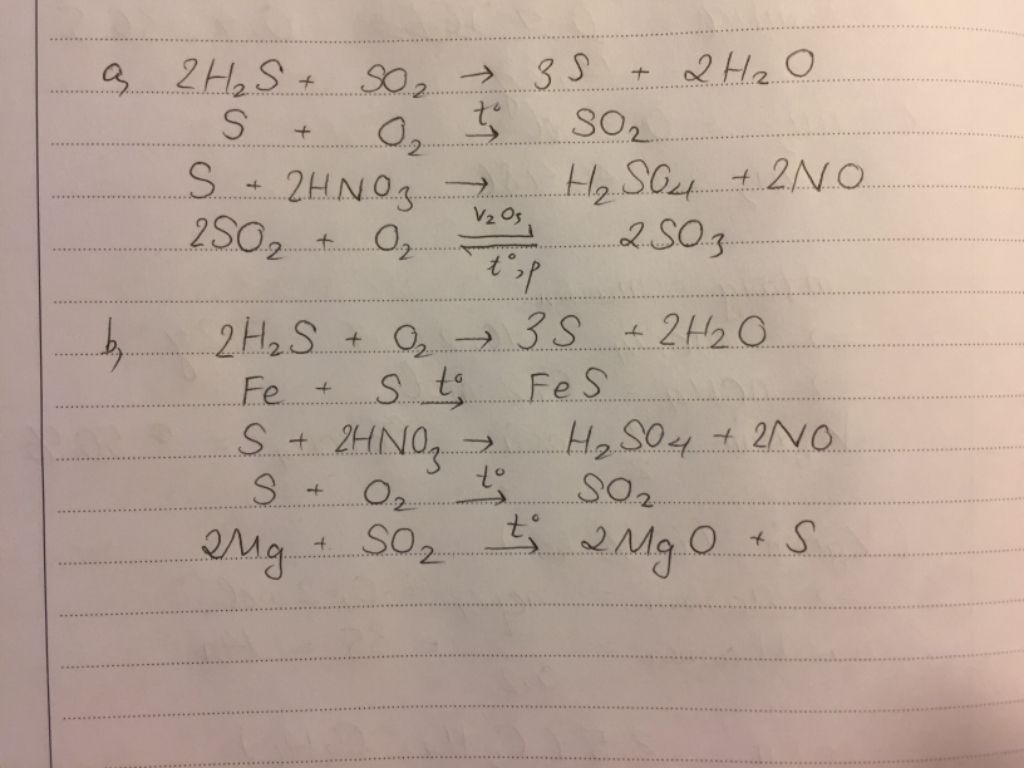 a, 2H₂S + SO₂ → 3S + 2H₂O
S + O₂ →(t°) SO₂
S + 2HNO₃ → H₂SO₄ + 2NO
2SO₂ + O₂ ⇌(V₂O₅, t°,p) 2SO₃
b, 2H₂S + O₂ → 3S + 2H₂O
Fe + S →(t°) FeS
S + 2HNO₃ → H₂SO₄ + 2NO
S + O₂ →(t°) SO₂
2Mg + SO₂ →(t°) 2MgO + S